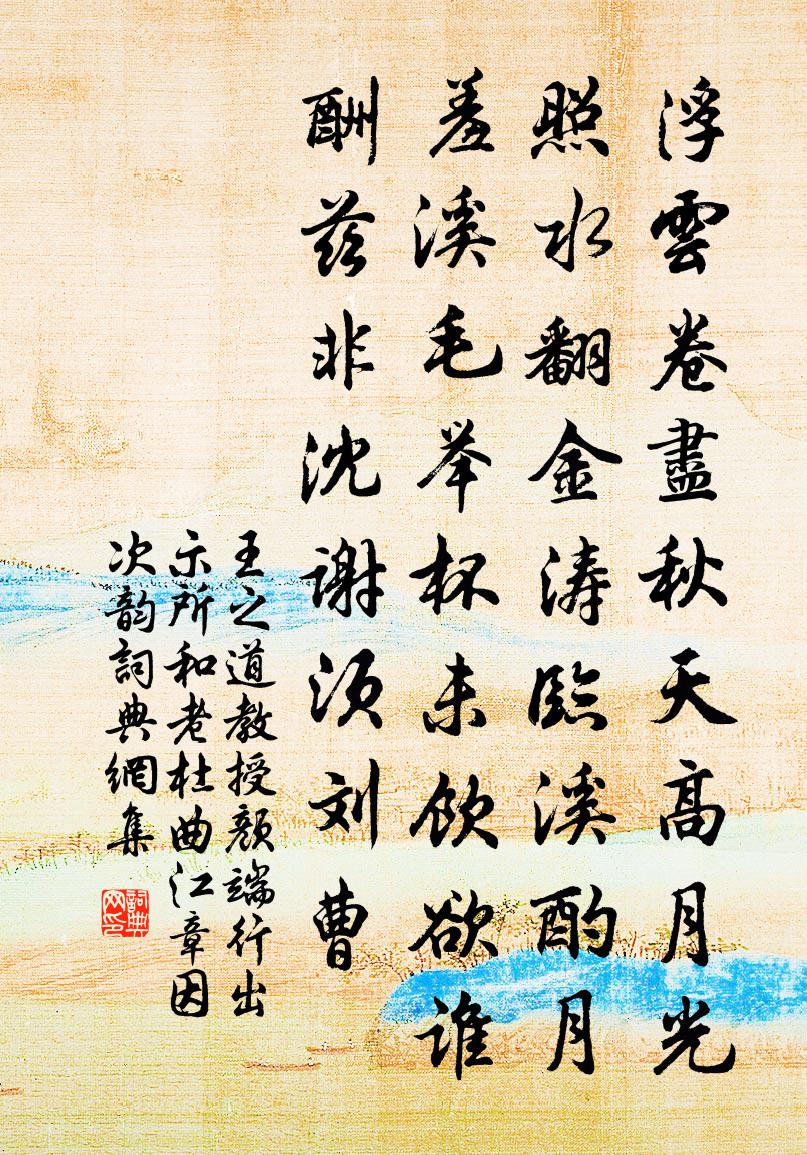 浮雲卷盡秋天高月光
照水翻金涛臨溪酌月
羞溪毛举杯未饮欲谁
酬兹非沈谢须刘曹
王之道教授颜端行出
示所和老杜曲江章因
次韵詞典網集
詞典网印